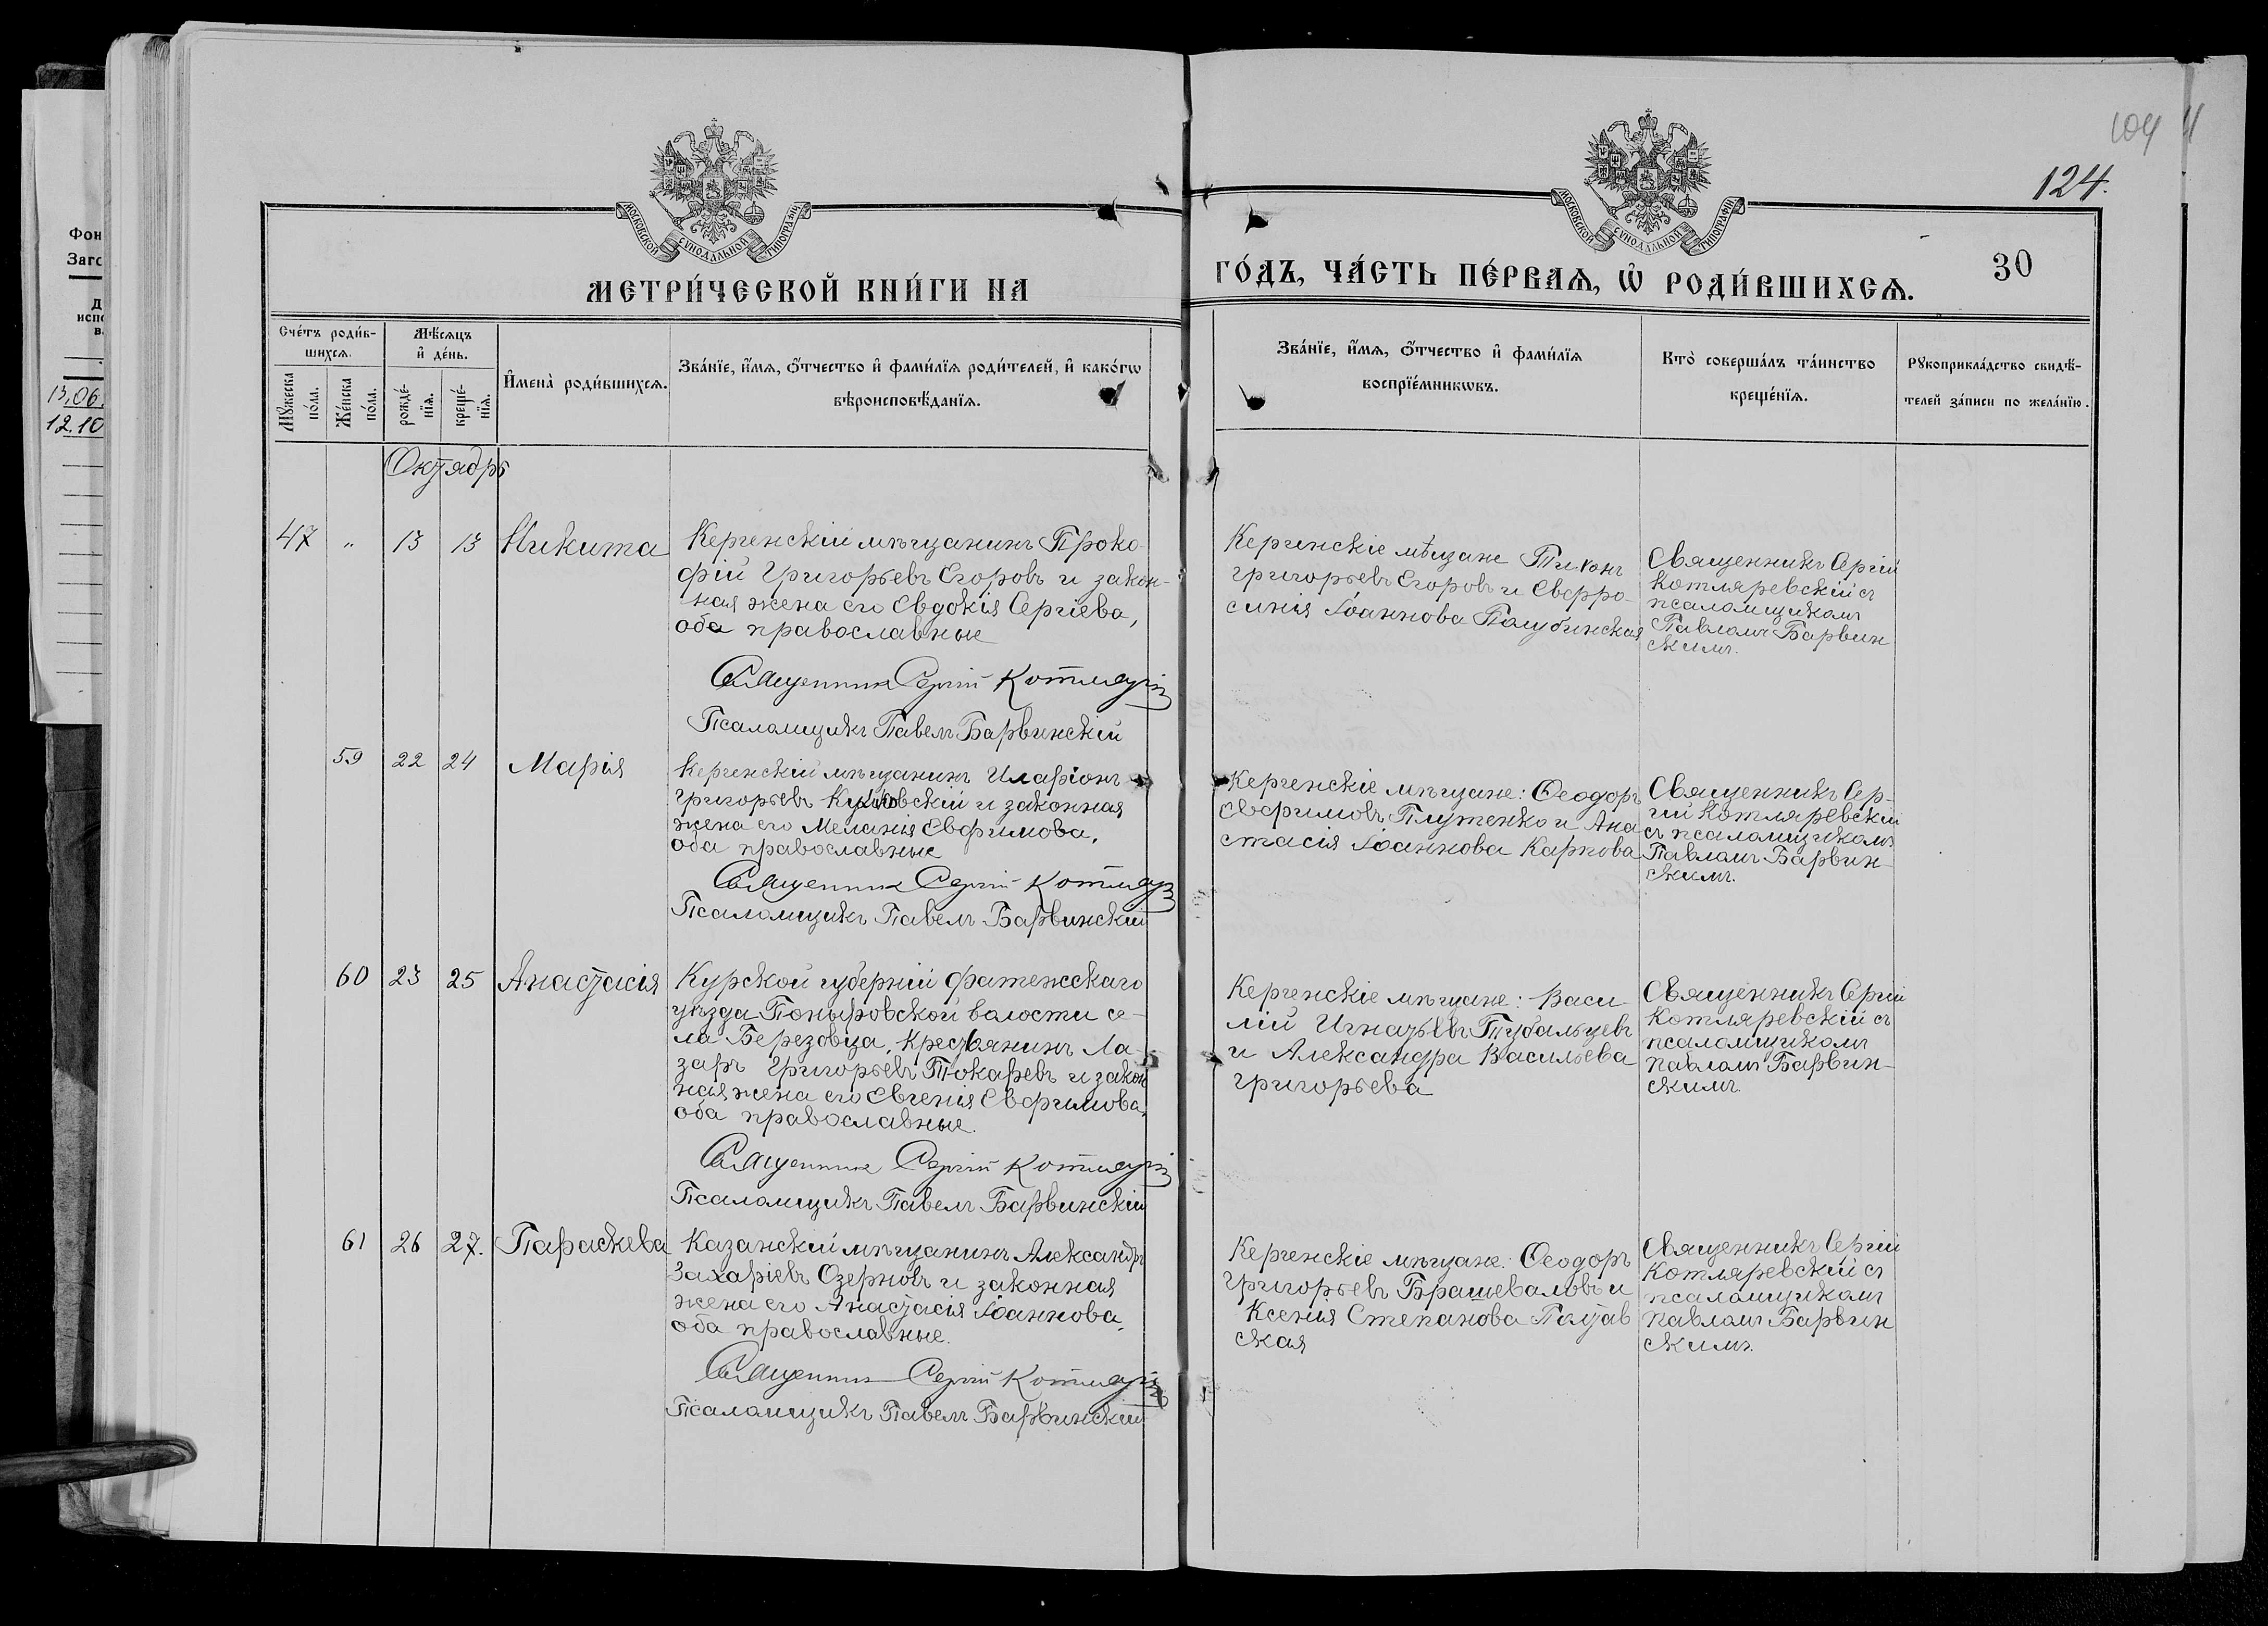 104
4
124.
30
Фон
Загс
Д
испо
в.
13.06.
12.10
МОСКОВСКОЙ СѴНОДАЛЬНОЙ ТИПОГРАФІИ
МОСКОВСКОЙ СѴНОДАЛЬНОЙ ТИПОГРАФІИ
МЕТРИ́ЧЕСКОЙ КНИ́ГИ НА
ГО́ДЪ, ЧА́СТЬ ПЕ́РВАѦ, Ѽ РОДИ́ВШИХСѦ.
Сче́тъ роди́в-
шихсѧ.
Мꙋ́жеска
по́ла.
Же́нска
по́ла.
Мѣ́сѧцъ
и҆ де́нь.
рожде́-
нїѧ.
креще́-
нїѧ.
И҆мена̀ роди́вшихсѧ.
Зва́нїе, и҆́мѧ, ѻ҆́тчество и҆ фами́лїѧ роди́телей, и҆ како́гѡ
вѣроисповѣ́данїѧ.
Зва́нїе, и҆́мѧ, ѻ҆́тчество и҆ фами́лїѧ
воспрїе́мникѡвъ.
Кто̀ соверша́лъ та́инство
креще́нїѧ.
Рꙋкоприкла́дство свидѣ́-
телей за́писи по жела́нїю.
Октябрь
47 " 13 13 Никита
Керченскій мѣщанинъ Проко-
фій Григорьевъ Егоровъ и закон-
ная жена его Евдокія Сергіева,
оба православные
Священникъ Сергій Котляр
Псаломщикъ Павелъ Барвинскій
Керченскіе мѣщане Тихонъ
Григорьевъ Егоровъ и Евфро-
синія Іоаннова Голубинская
Священникъ Сергій
Котляревскій съ
псаломщикомъ
Павломъ Барвин
скимъ.
59 22 24 Марія
Керченскій мѣщанинъ Иларіонъ
Григорьевъ и законная
жена его Меланія Евфимова,
оба православные
Священникъ Сергій Котляр
Псаломщикъ Павелъ Барвинскій
Керченскіе мѣщане: Ѳеодоръ
Евфимовъ Плутенко и Ана
стасія Іоаннова Карпова
Священникъ Сер-
гій Котляревскій
съ псаломщикомъ
Павломъ Барвин-
скимъ.
60 23 25 Анастасія
Курской губерніи Фатежскаго
уѣзда Поныровской волости се-
ла Березовца, крестьянинъ Ла-
зарь Григорьевъ Токаревъ и закон
ная жена его Евгенія Евфимова,
оба православные.
Священникъ Сергій Котляр
Псаломщикъ Павелъ Барвинскій
Керченскіе мѣщане: Васи-
лій Игнатьевъ Губальцевъ
и Александра Васильева
Григорьева
Священникъ Сергій
Котляревскій съ
псаломщикомъ
Павломъ Барвин-
скимъ
61 26 27. Параскева
Казанскій мѣщанинъ Александръ
Захаріевъ Озерновъ и законная
жена его Анастасія Іоаннова,
оба православные.
Священникъ Сергій Котляр
Псаломщикъ Павелъ Барвинскій
Керченскіе мѣщане: Ѳеодоръ
Григорьевъ Брашеваловъ и
Ксенія Степанова Полтав
ская
Священникъ Сергій
Котляревскій съ
псаломщикомъ
Павломъ Барвин
скимъ.